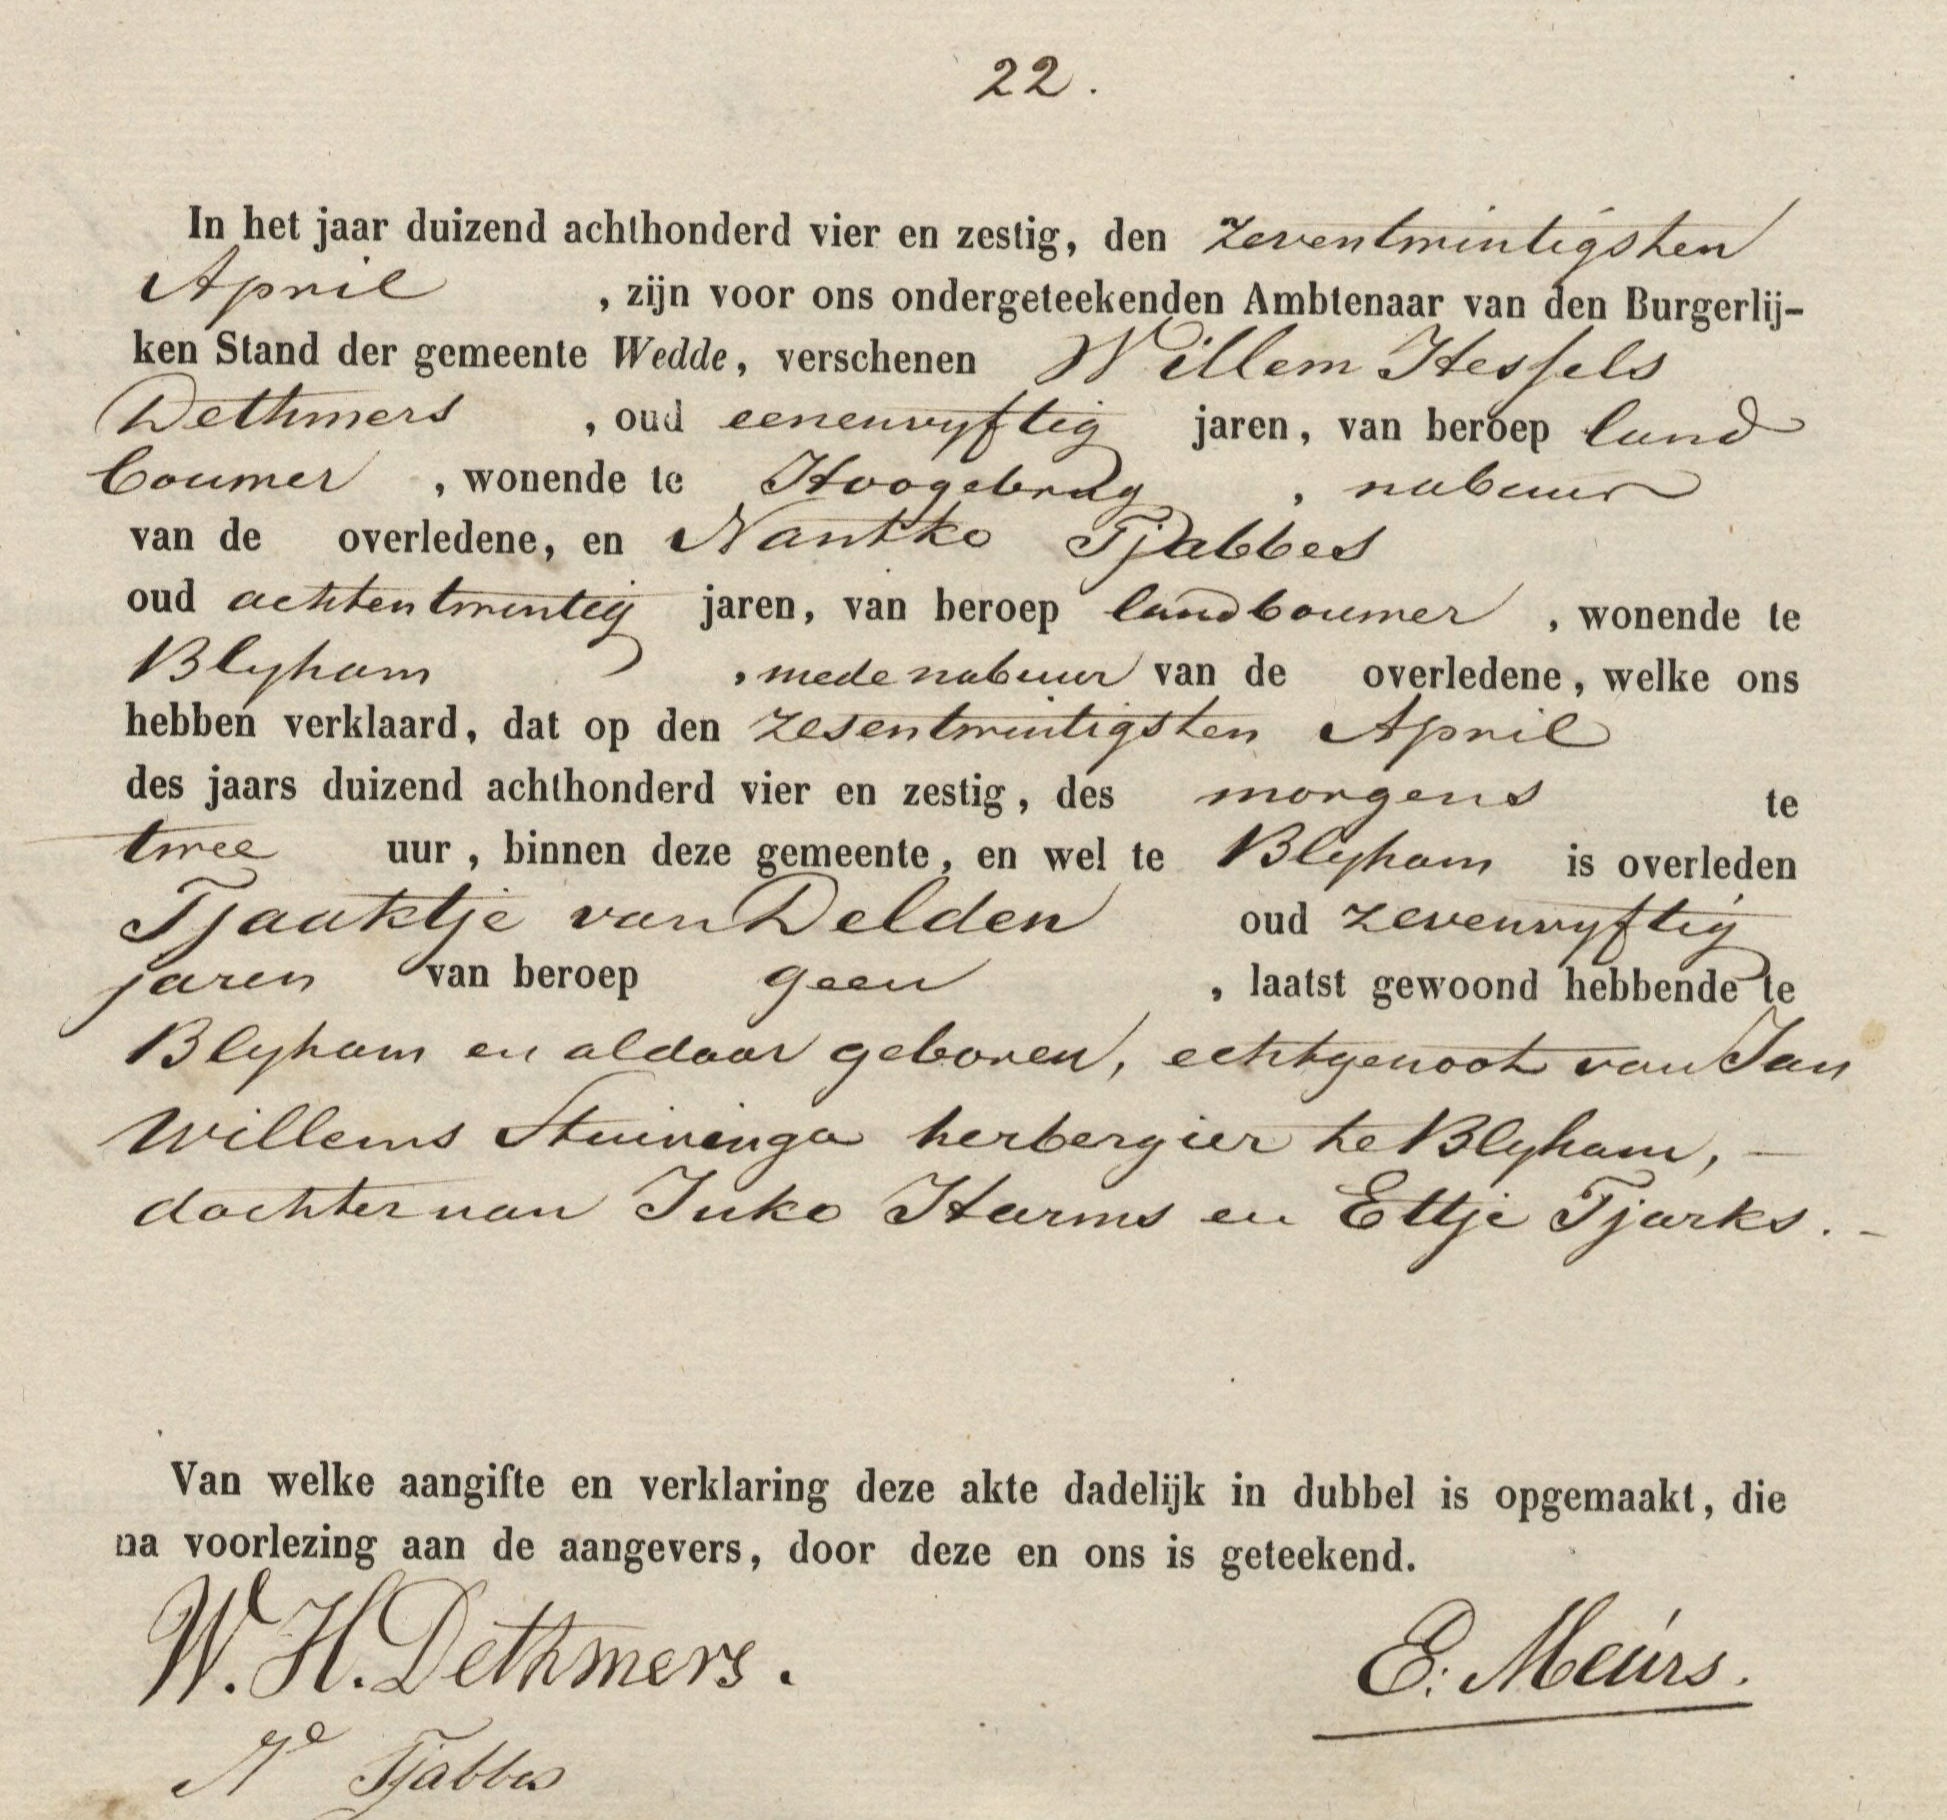 22.
In het jaar duizend achthonderd vier en zestig, den zeventwintigsten
April , zijn voor ons ondergeteekenden Ambtenaar van den Burgerlij-
ken Stand der gemeente Wedde, verschenen Willem Hessels
Dethmers , oud eenenvyftig jaren, van beroep land
bouwer , wonende te Hoogebrug , nabuur
van de overledene, en Nantko Tjabbes
oud achtentwintig jaren, van beroep landbouwer , wonende te
Blyham , mede nabuur van de overledene, welke ons
hebben verklaard, dat op den zesentwintigsten April
des jaars duizend achthonderd vier en zestig, des morgens te
twee uur, binnen deze gemeente, en wel te Blyham is overleden
Tjaaktje van Delden oud zevenvyftig
jaren van beroep geen , laatst gewoond hebbende te
Blyham en aldaar geboren, echtgenoot van Jan
Willems Stuivinga herbergier te Blyham, —
dochter van Juko Harms en Ettje Tjarks. -
Van welke aangifte en verklaring deze akte dadelijk in dubbel is opgemaakt, die
na voorlezing aan de aangevers, door deze en ons is geteekend.
W. H. Dethmers. E. Meurs.
Tjabbes